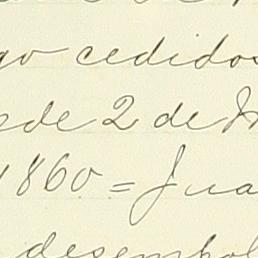 go cedidos
ede 2 de M
1860 = Jua
desembol